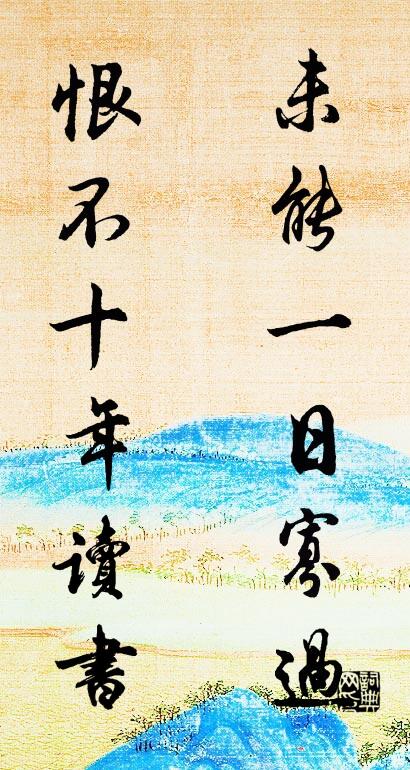 未能一日寡過
恨不十年讀書
詞典網